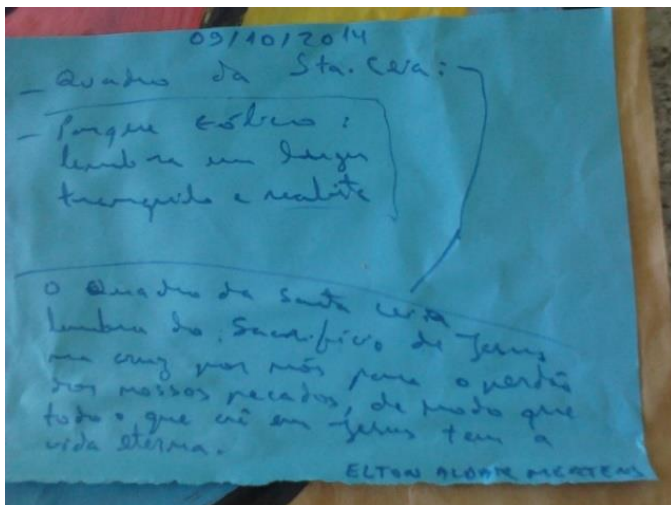 09/10/2014
- Quadro da Sta. Ceia:
- Parque Eólico:
lembra um lugar
tranquilo e
O Quadro da Santa Ceia
lembra do Sacrifício de Jesus
na cruz por nós para o perdão
dos nossos pecados, de modo que
todo o que crê em Jesus tem a
vida eterna.
ELTON ALDAIR MERTENS